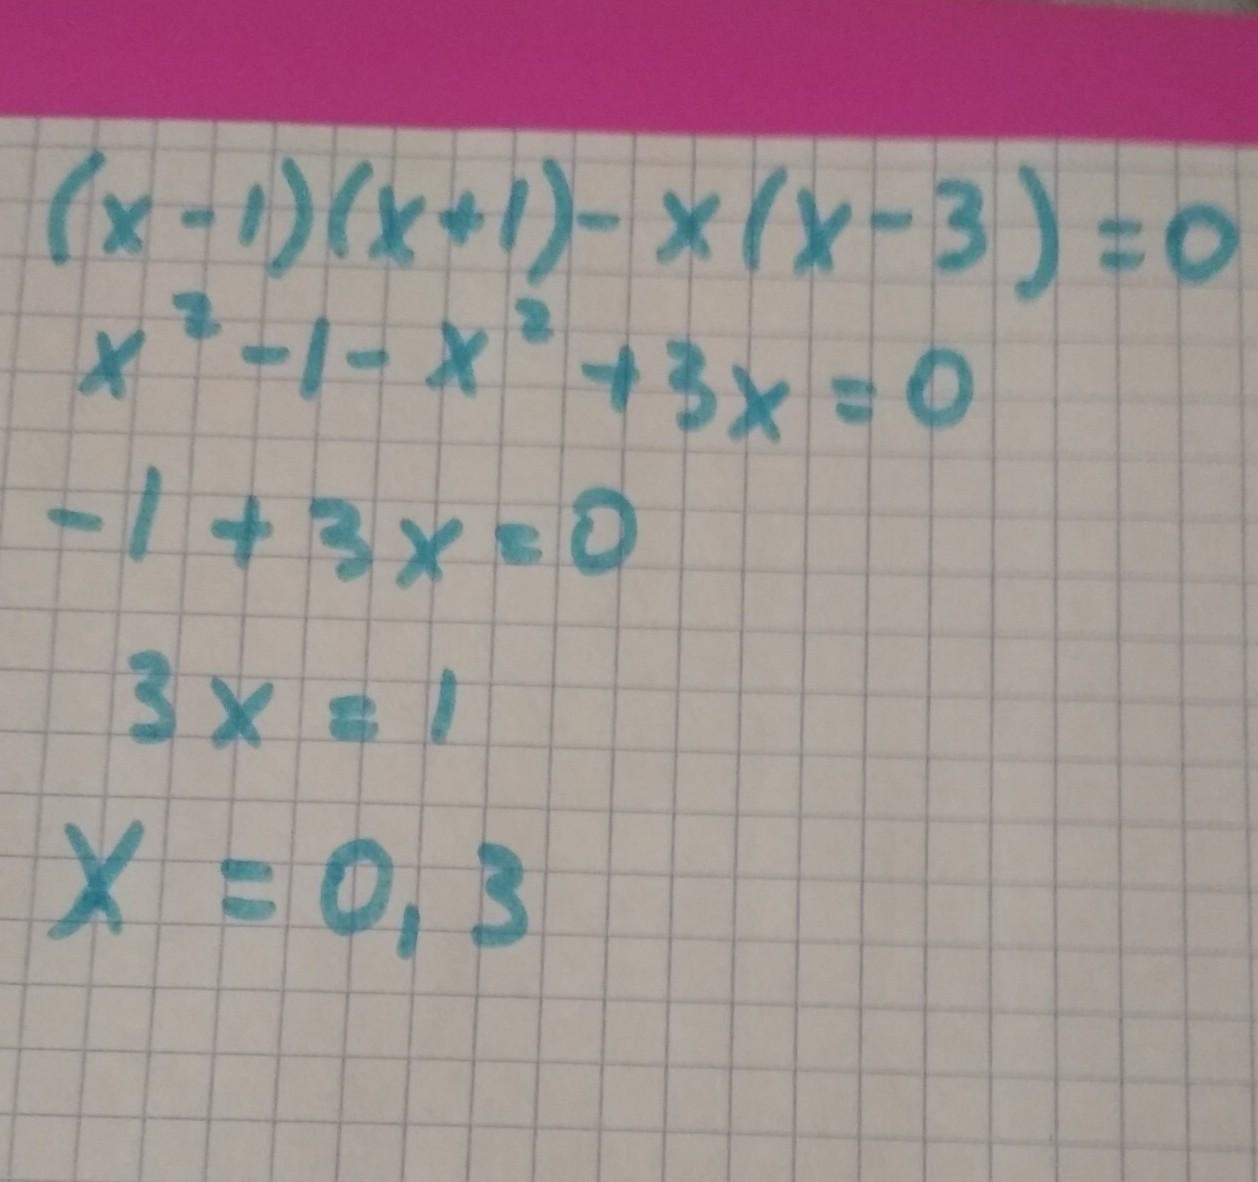 (x-1)(x+1)- x(x-3)=0
x²-1-x²+3x=0
-1+3x=0
3x=1
x=0,3